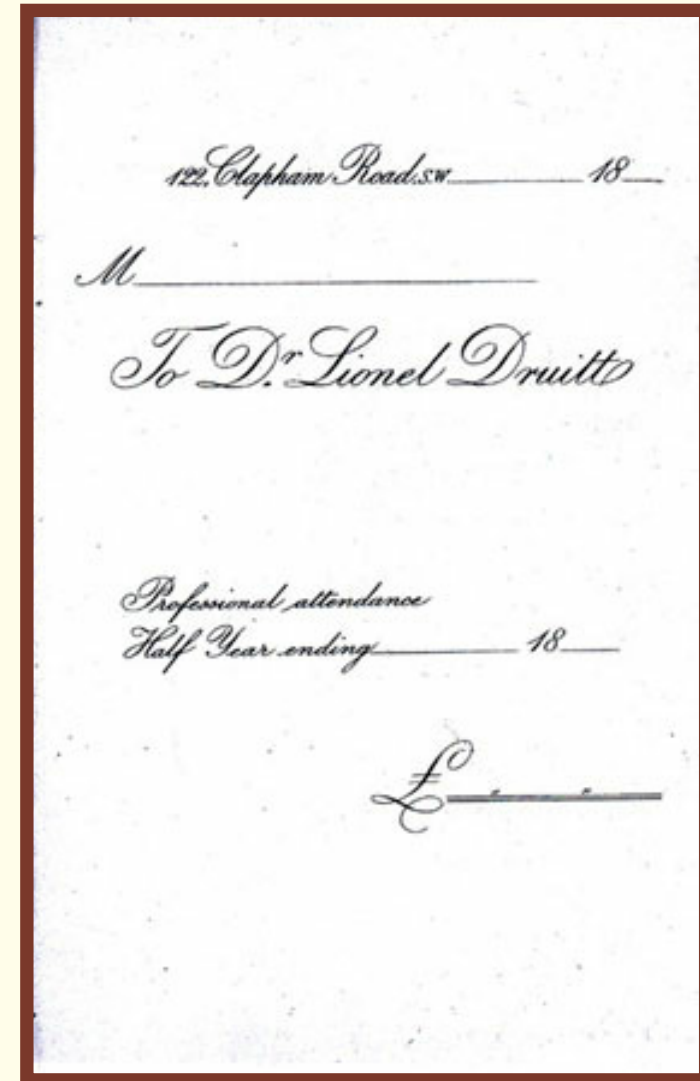 122, Clapham Road. S.W. 18
M
To Dr. Lionel Druitt
Professional attendance
Half Year ending 18
£